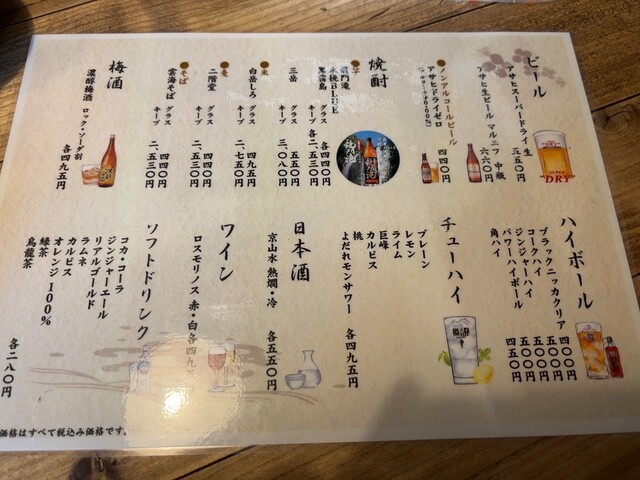 ビール
アサヒスーパードライ 生 五五〇円
アサヒ生ビール マルエフ 中瓶 六六〇円
ノンアルコールビール
アサヒドライゼロ 四四〇円
(アルコール分0.00%)
焼酎
芋
龍門滝
木挽BLUE
黒霧島 グラス 各四四〇円
キープ 各二、五三〇円
三岳 グラス 五五〇円
キープ 三、〇八〇円
米
白岳しろ グラス 四九五円
キープ 二、七五〇円
麦
二階堂 グラス 四四〇円
キープ 二、五三〇円
そば
雲海そば グラス 四四〇円
キープ 二、五三〇円
梅酒
濃醇梅酒 ロック・ソーダ割 各四九五円
ハイボール
ブラックニッカクリア 四〇〇円
コークハイ 五〇〇円
ジンジャーハイ 五〇〇円
パワーハイボール 五五〇円
角ハイ 四五〇円
チューハイ
プレーン
レモン
ライム
カルピス
巨峰
桃
よだれモンサワー 各四九五円
日本酒
京山水 熱燗・冷 各五五〇円
ワイン
ロスモリノス 赤・白 各四九五円
ソフトドリンク
コカ・コーラ
ジンジャーエール
リアルゴールド
ラムネ
カルピス
オレンジ100%
緑茶
烏龍茶 各二八〇円
価格はすべて税込み価格です。